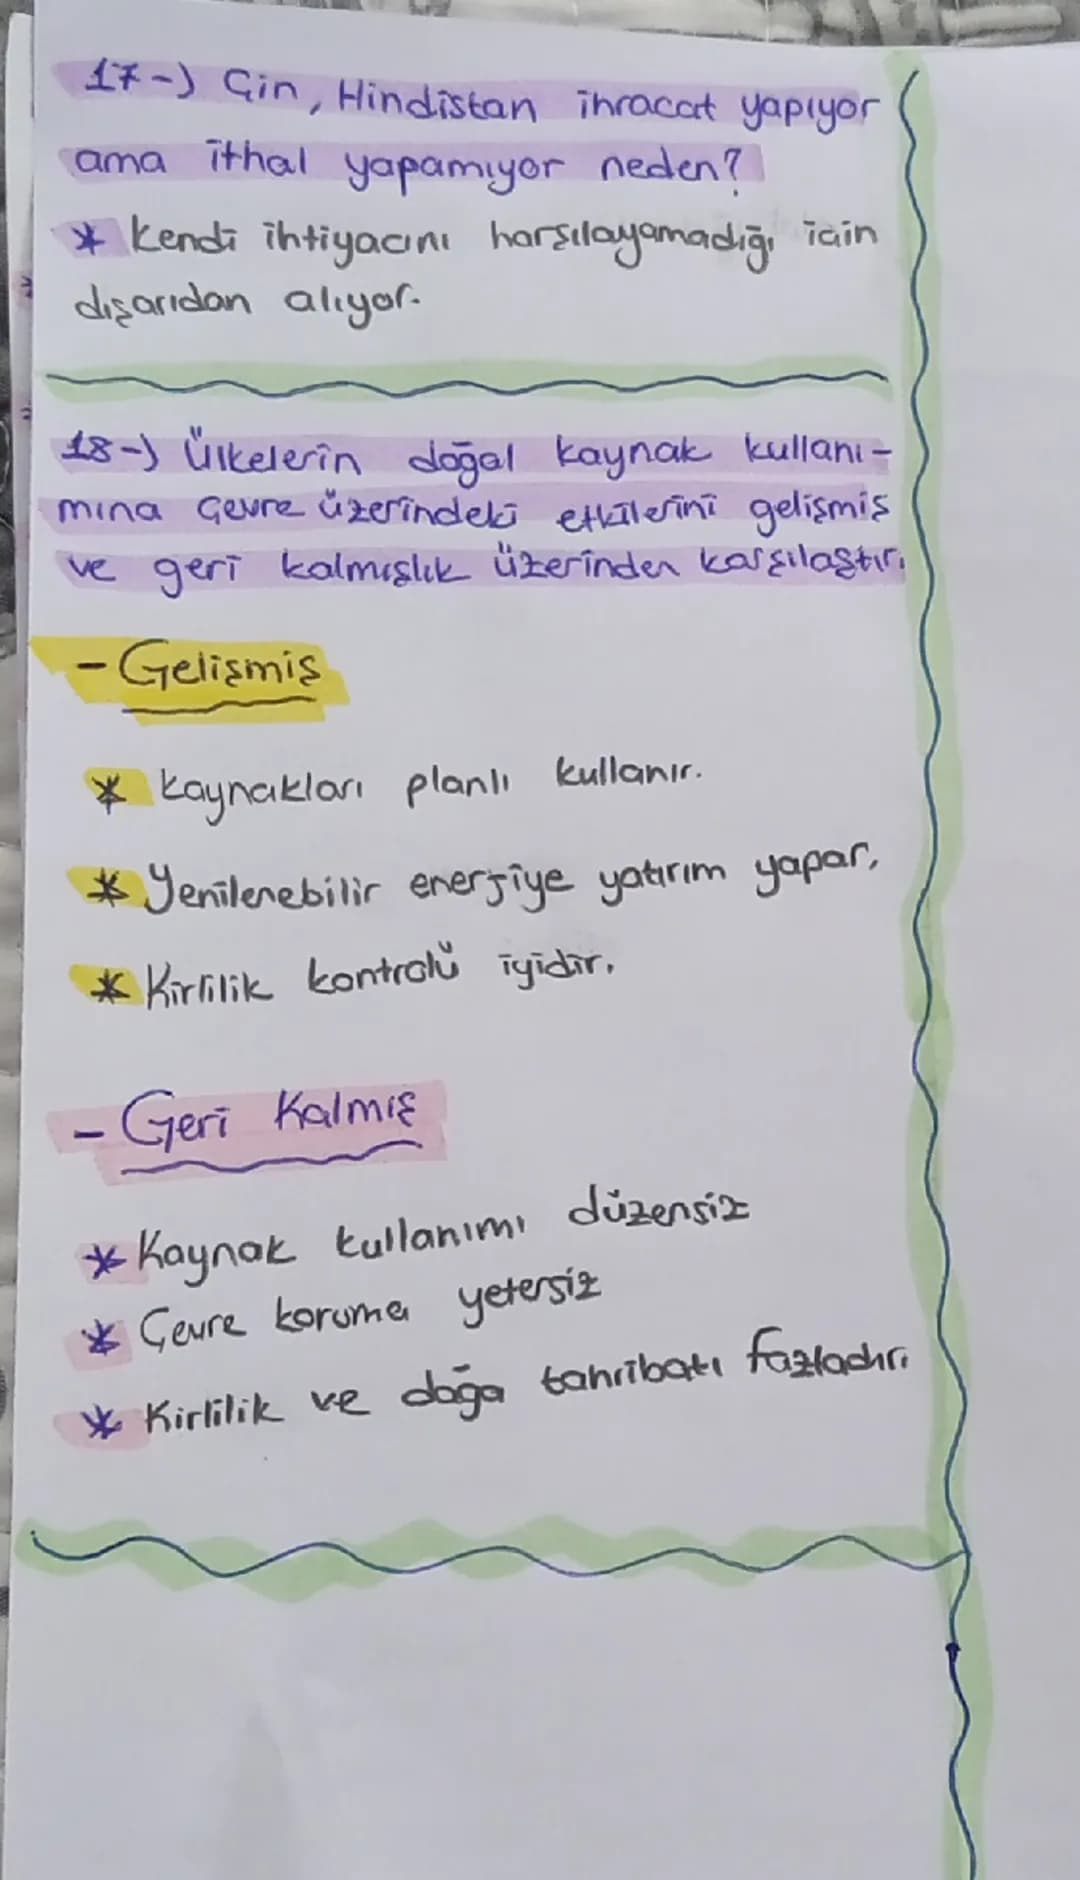 17-) Çin, Hindistan ihracat yapıyor
ama ithal yapamıyor neden?
* Kendi ihtiyacını harşılayamadığı için
dışarıdan alıyor.
18-) Ülkelerin doğal kaynak kullanı-
mına çevre üzerindeki etkilerini gelişmiş
ve geri kalmışlık üzerinden karşılaştır.
- Gelişmiş
* Kaynakları planlı kullanır.
* Yenilenebilir enerjiye yatırım yapar,
* Kirlilik kontrolü iyidir.
- Geri Kalmış
* Kaynak kullanımı düzensiz
* Çevre koruma yetersiz
* Kirlilik ve doğa tahribatı fazladır.